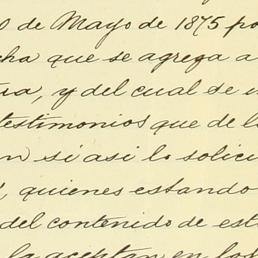 0 de Mayo de 1875 po
cha que se agrega a
ra, y del cual se
testimonios que de l
n si asi lo solici
, quienes estando
del contenido de est
la aceptan en los